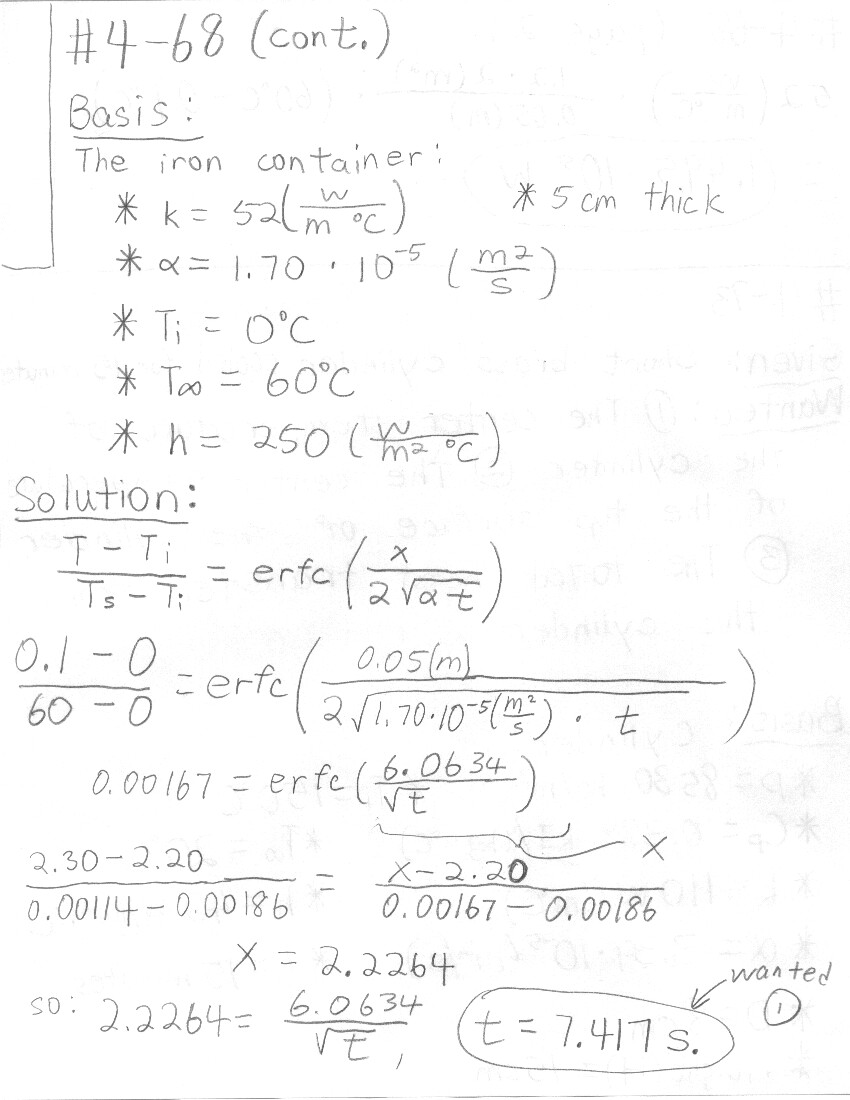 #4-68 (cont.)
Basis:
The iron container:
* k = 52 (W / m °C)    * 5 cm thick
* α = 1.70 · 10⁻⁵ (m² / s)
* Ti = 0°C
* T∞ = 60°C
* h = 250 (W / m² °C)
Solution:
(T - Ti) / (Ts - Ti) = erfc (x / 2√(αt))
(0.1 - 0) / (60 - 0) = erfc (0.05(m) / 2√(1.70·10⁻⁵(m²/s) · t))
0.00167 = erfc (6.0634 / √t)
x
(2.30 - 2.20) / (0.00114 - 0.00186) = (x - 2.20) / (0.00167 - 0.00186)
x = 2.2264
so: 2.2264 = 6.0634 / √t , t = 7.417 s.
wanted ①